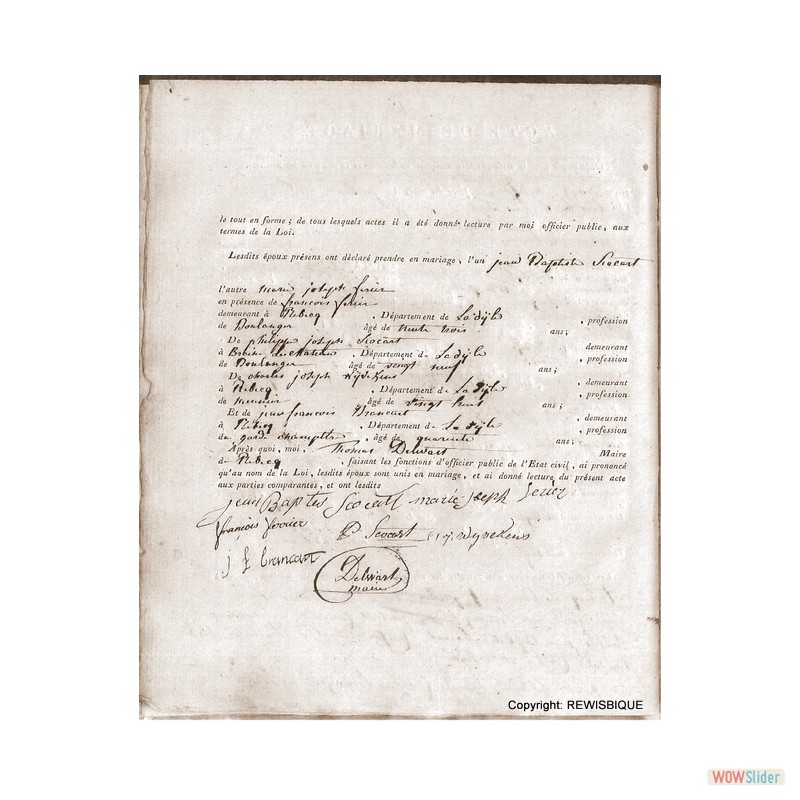 le tout en forme ; de tous lesquels actes il a été donné lecture par moi officier public, aux
termes de la Loi.
Lesdits époux présens ont déclaré prendre en mariage, l'un jean Baptiste Scocart
l'autre marie joseph
en présence de françois
demeurant à Rebecq , Département de La dÿle , profession
de Boulanger âgé de trente trois ans ;
De philippe joseph Scocart demeurant
à Braine , Département de La dÿle , profession
de Boulanger âgé de vingt neuf ans ;
De charles joseph demeurant
à Rebecq , Département de La dÿle , profession
de meunier âgé de vingt ans ;
Et de jean francois Brancart demeurant
à Rebecq , Département de La dÿle , profession
de garde champetre , âgé de quarente ans ;
Après quoi, moi, Thomas Delwart Maire
de Rebecq , faisant les fonctions d'officier public de l'Etat civil, ai prononcé
qu'au nom de la Loi, lesdits époux sont unis en mariage, et ai donné lecture du présent acte
aux parties comparantes, et ont lesdits
jean Baptis marie joseph
françois
Scocart wynekens
j f brancart
Delwart
maire
Copyright: REWISBIQUE
WOWSlider